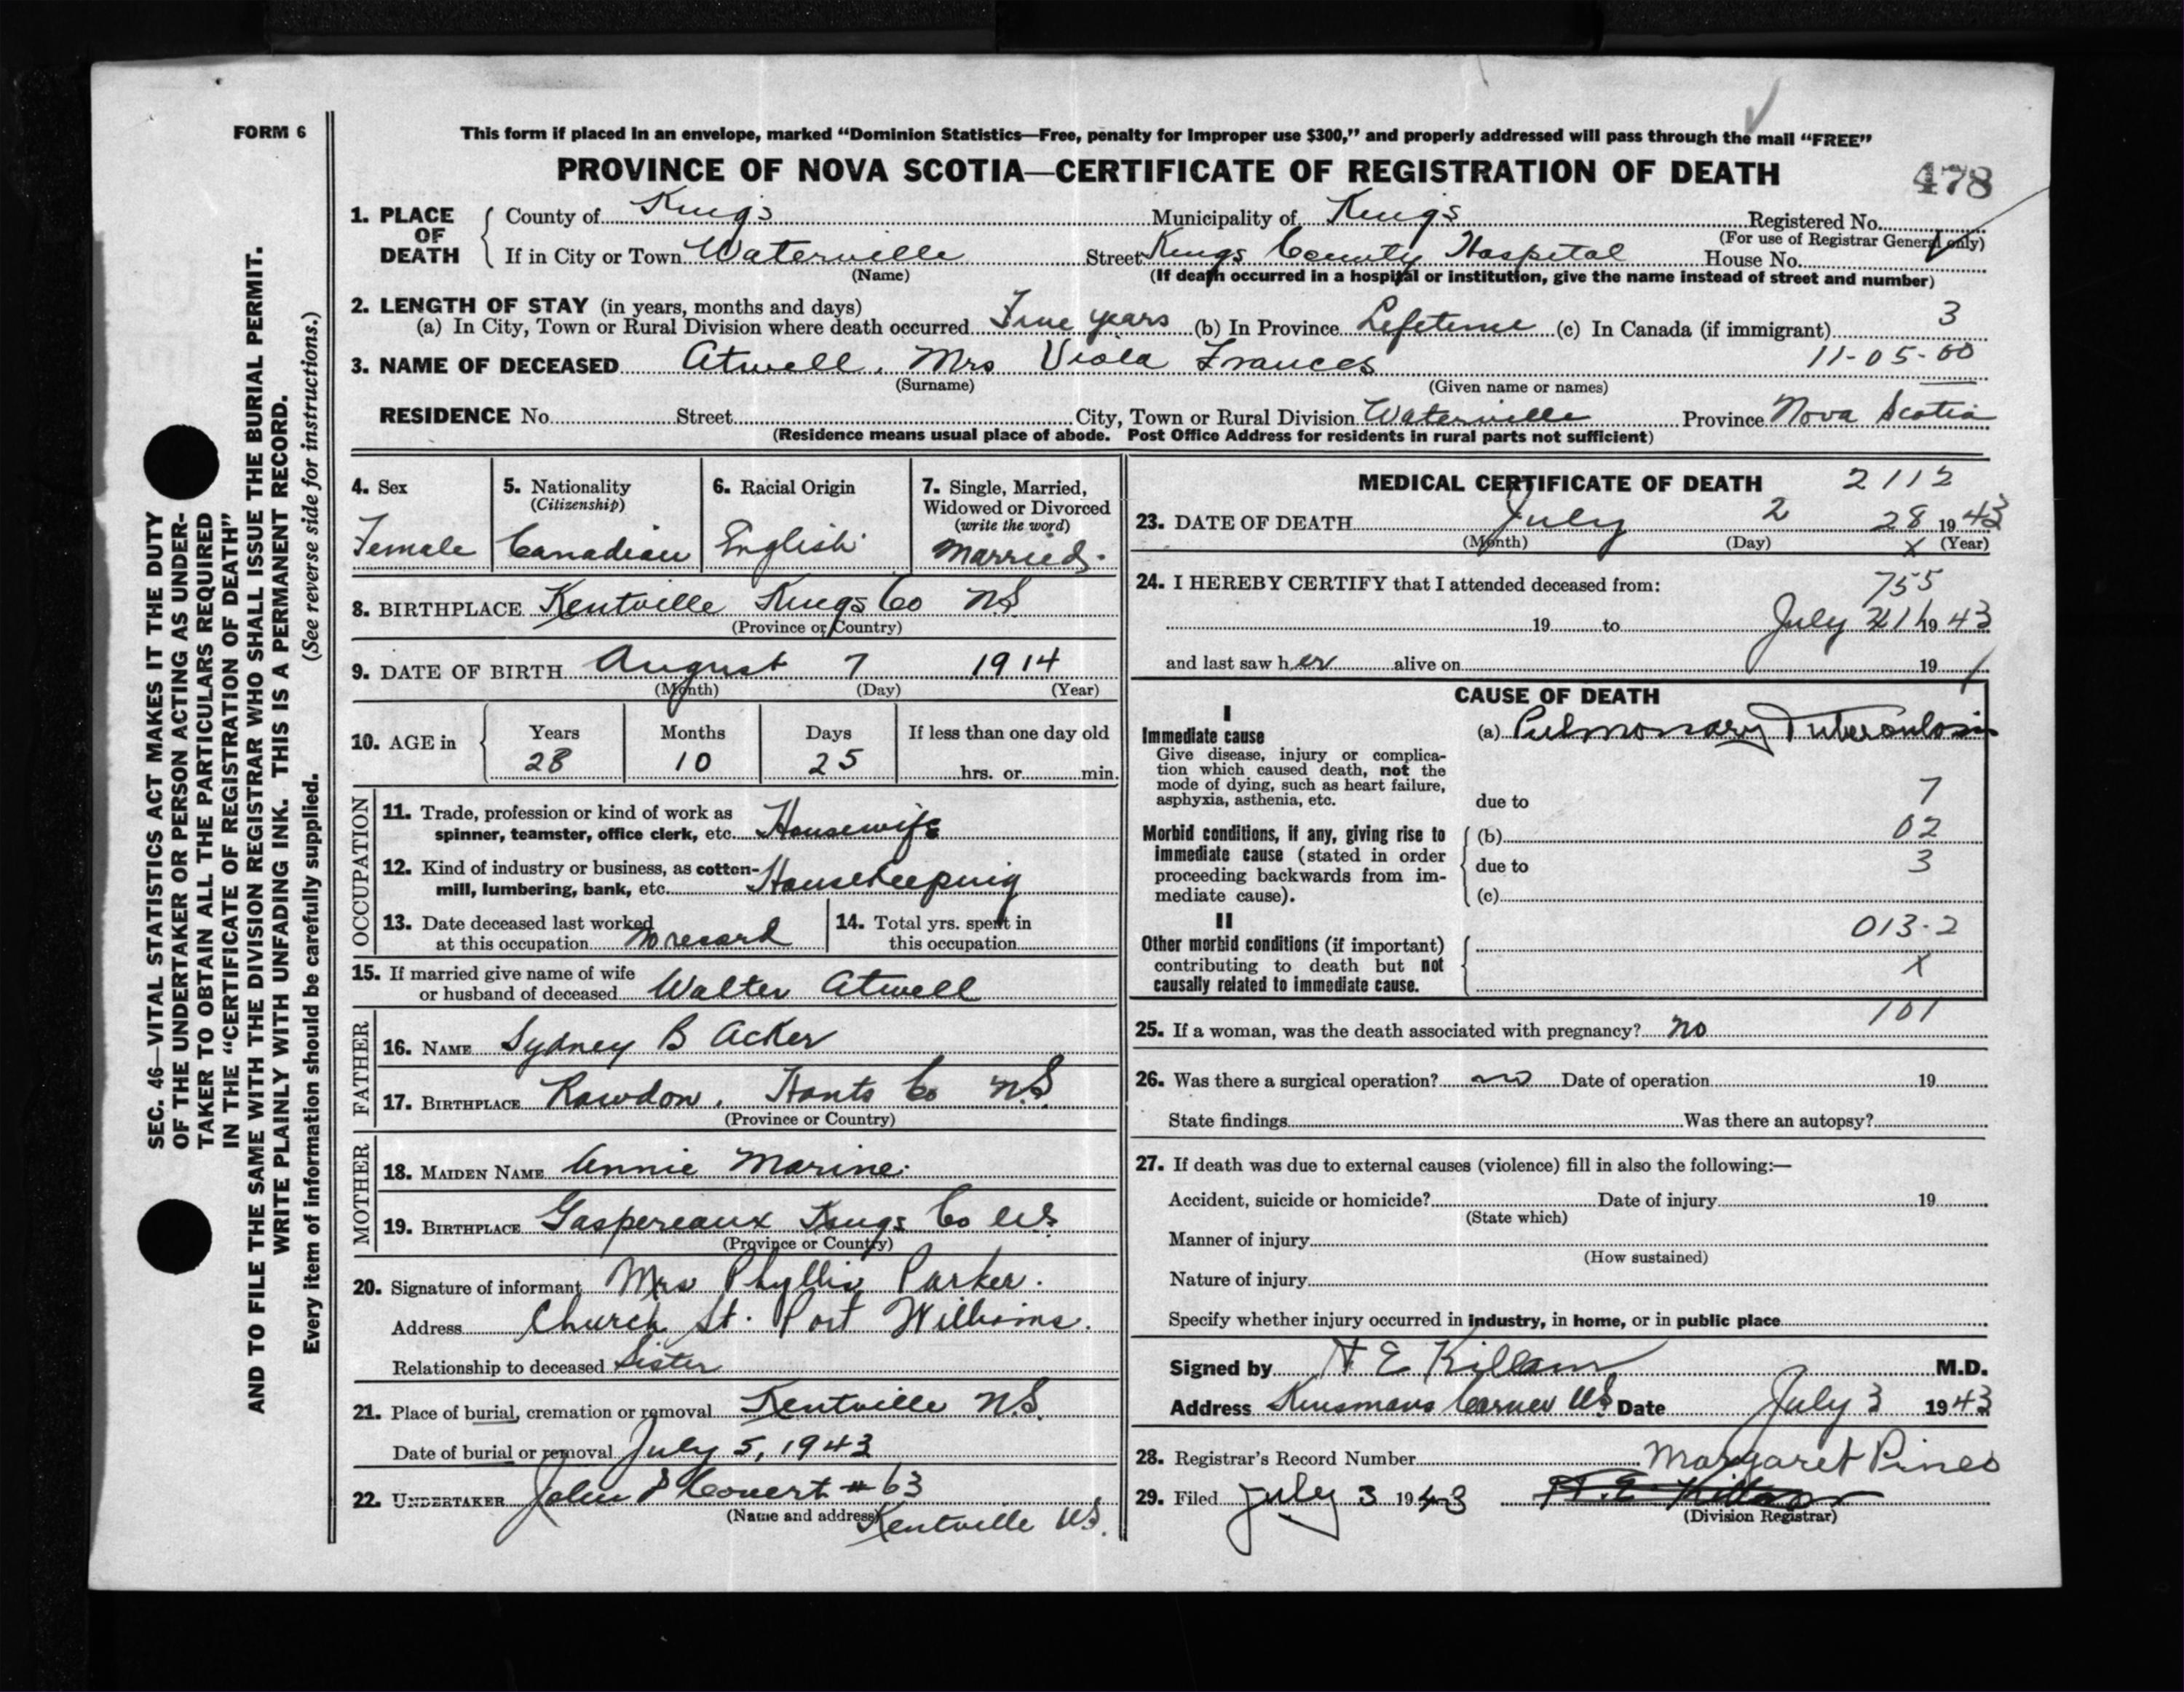 FORM 6
This form if placed in an envelope, marked “Dominion Statistics—Free, penalty for improper use $300,” and properly addressed will pass through the mail “FREE”
PROVINCE OF NOVA SCOTIA—CERTIFICATE OF REGISTRATION OF DEATH
478
1. PLACE OF DEATH
County of Kings Municipality of Kings Registered No.
(For use of Registrar General only)
If in City or Town Waterville Street Kings County Hospital House No.
(Name) (If death occurred in a hospital or institution, give the name instead of street and number)
2. LENGTH OF STAY (in years, months and days)
(a) In City, Town or Rural Division where death occurred years (b) In Province Lifetime (c) In Canada (if immigrant) 3
11-05-00
3. NAME OF DECEASED Atwell, Mrs Viola Frances
(Surname) (Given name or names)
RESIDENCE No. Street City, Town or Rural Division Waterville Province Nova Scotia
(Residence means usual place of abode. Post Office Address for residents in rural parts not sufficient)
4. Sex
Female
5. Nationality
(Citizenship)
Canadian
6. Racial Origin
English
7. Single, Married,
Widowed or Divorced
(write the word)
Married.
8. BIRTHPLACE Kentville Kings Co NS
(Province or Country)
9. DATE OF BIRTH August 7 1914
(Month) (Day) (Year)
10. AGE in
Years Months Days If less than one day old
28 10 25 hrs. or min.
OCCUPATION
11. Trade, profession or kind of work as
spinner, teamster, office clerk, etc. Housewife
12. Kind of industry or business, as cotton-
mill, lumbering, bank, etc. Housekeeping
13. Date deceased last worked
at this occupation No record
14. Total yrs. spent in
this occupation
15. If married give name of wife
or husband of deceased Walter Atwell
FATHER
16. NAME Sydney B Acker
17. BIRTHPLACE Rawdon, Hants Co N.S.
(Province or Country)
MOTHER
18. MAIDEN NAME Annie Marine.
19. BIRTHPLACE Gaspereaux Kings Co NS
(Province or Country)
20. Signature of informant Mrs Phyllis Parker.
Address Church St. Port Williams.
Relationship to deceased Sister
21. Place of burial, cremation or removal Kentville N.S.
Date of burial or removal July 5, 1943
22. UNDERTAKER John # 63
(Name and address) Kentville NS.
MEDICAL CERTIFICATE OF DEATH 2112
23. DATE OF DEATH July 2 28 1943
(Month) (Day) X (Year)
24. I HEREBY CERTIFY that I attended deceased from:
755
19 to July 1943
and last saw her alive on 19
CAUSE OF DEATH
I
Immediate cause
(a) Pulmonary Tuberculosis
Give disease, injury or complica-
tion which caused death, not the
mode of dying, such as heart failure,
asphyxia, asthenia, etc.
due to 7
Morbid conditions, if any, giving rise to
immediate cause (stated in order
proceeding backwards from im-
mediate cause).
(b) 02
due to 3
(c)
II
013-2
Other morbid conditions (if important)
contributing to death but not
causally related to immediate cause.
X
101
25. If a woman, was the death associated with pregnancy? No
26. Was there a surgical operation? no Date of operation 19
State findings Was there an autopsy?
27. If death was due to external causes (violence) fill in also the following:—
Accident, suicide or homicide? Date of injury 19
(State which)
Manner of injury
(How sustained)
Nature of injury
Specify whether injury occurred in industry, in home, or in public place
Signed by E Killam M.D.
Address Kinsmans Corner NS Date July 3 1943
28. Registrar's Record Number
Margaret Pineo
29. Filed July 3 1943
(Division Registrar)
SEC. 46—VITAL STATISTICS ACT MAKES IT THE DUTY
OF THE UNDERTAKER OR PERSON ACTING AS UNDER-
TAKER TO OBTAIN ALL THE PARTICULARS REQUIRED
IN THE “CERTIFICATE OF REGISTRATION OF DEATH”
AND TO FILE THE SAME WITH THE DIVISION REGISTRAR WHO SHALL ISSUE THE BURIAL PERMIT.
WRITE PLAINLY WITH UNFADING INK. THIS IS A PERMANENT RECORD.
Every item of information should be carefully supplied. (See reverse side for instructions.)